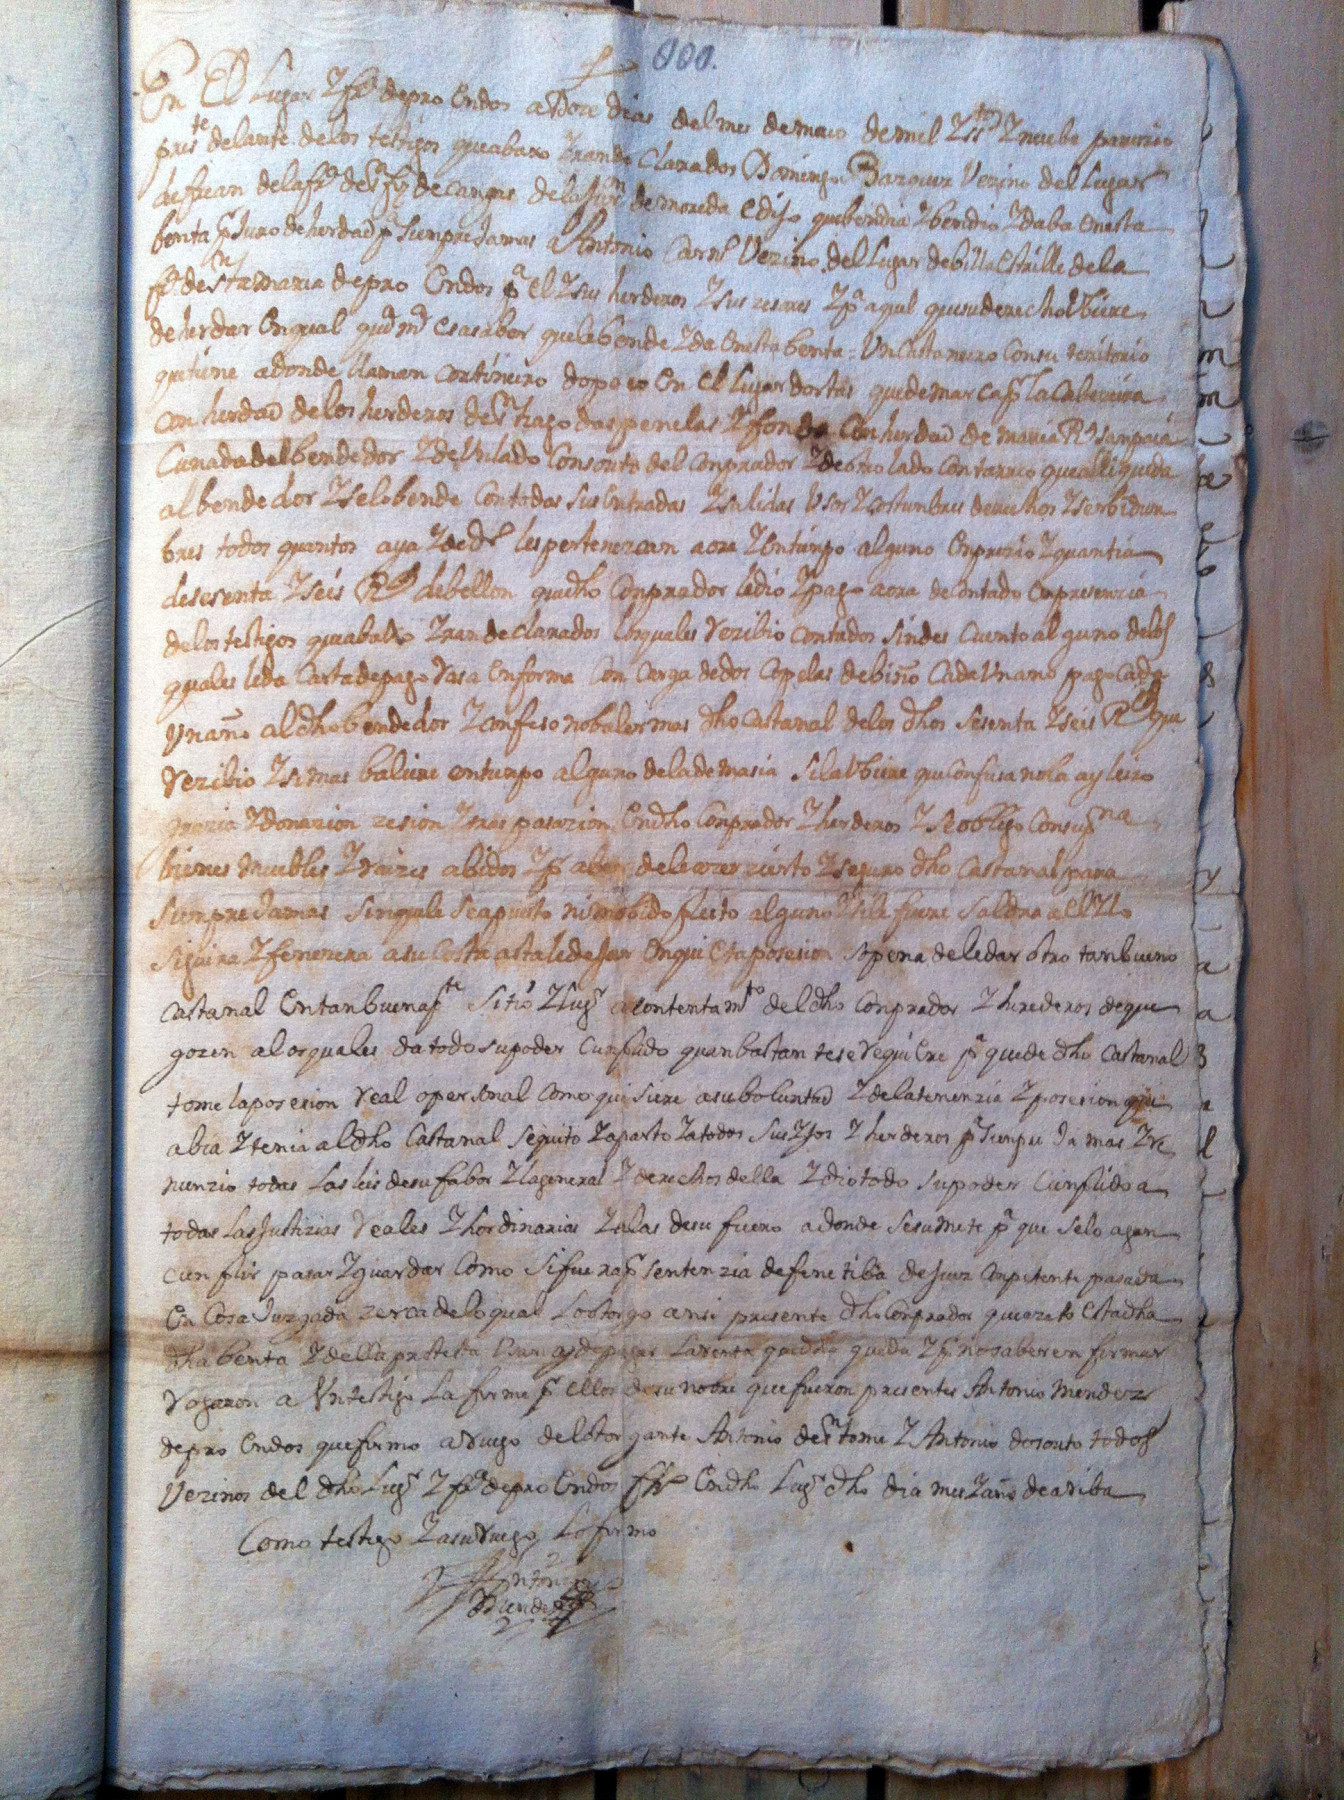 En El Lugar Y fª de pro Endos a Doze dias del mes de maio de mil Y sstos Y nuebe parezio
preste delante de los testigos que abaxo Yran de Clarados Domingo Bazquez Vezino del Lugar
de fuan de la fª de de cangas de la Juron de moreda e dijo que bendia Y bendio Y daba En esta
benta pr Juro de herdad pª sienpre Jamas a Antonio Vezino del Lugar de billa Estrille de la
fª de Sta maria de pro Endos pª el Y sus herderos Y sus zesores Y pª aquel que su derecho Vbiere
de herdar En qual quier mª es a saber que le bende Y da En esta benta = Vn Castaneiro Con su teritorio
que tiene a donde llaman cortineiro do pozo En el Lugar dortas que demarca pr la Cabezeira
con herdad de los herderos de Stiago das penelas Y fonda Con herdad de maria Rs sanpaia
Cunada del bendedor Y de Vn lado Con souto del Conprador Y de otro lado Con tarreo que alli queda
al bendedor Y se lo bende Con todas sus Entradas Y salidas Vsos Y costunbres derechos Y serbidun
bres todos quantos aya Y de dro les pertenezcan aora Y En tienpo alguno En prezio Y quantia
de sesenta Y seis Rs de bellon que dho Conprador le dio Y pago aora de Contado En presenzia
de los testigos que abaxo Yran declarados los quales Rezibio Contados sin des Cuento alguno de los
quales le da Carta de pago Rasa En forma Con Carga de dos Copelas de bino Cada Vn ano pago Cada
Vn año al dho bendedor Y confeso no baler mas dho Castanal de los dhos sesenta Y seis Rs que
Rezibio Y si mas baliere En tienpo alguno de la demasia si la Vbiere que Confiesa no la ay le izo
grazia Y donazion zesion Y tras pasazion En dho Conprador Y herderos Y se obligo Con su prna
bienes muebles Y raizes abidos Y pr aber de le azer zierto Y seguro dho Castanal para
sienpre Jamas sin que le sea puesto ni mobido pleito alguno Y si le fuere saldra a el Y lo
siguira Y fenezera a su Costa asta le dejar En quieta posesion so pena de le dar otro tan bueno
Castanal En tan buena pte Sitio Y Lugr a contentamto del dho Conprador Y herederos de que
gozen a los quales da todo su poder Cunplido quan bastante se Requiere pª que de dho Castanal
tome la posesion Real o personal Como quisiere a su boluntad Y de la tenenzia Y posesion que
abia Y tenia al dho Castanal se quito Y aparto Y a todos sus Yjos Y herderos pª sienpre Ja mas Y re
nunzio todas Las leis de su fabor Y la general Y derechos della Y dio todo su poder Cunplido a
todas las Justizias Reales Y hordinarias Y a las de su fuero a donde se sumete pª que se lo agan
Cunplir pasar Y guardar Como si fuera pr sentenzia definitiba de Juez Conpetente pasada
En Cosa Juzgada zerca de lo qual Lo otorgo ansi presente dho Conprador que azeto Esta dha
dha benta Y della protesta Vsar de pagar La renta que dho queda Y pr no saberen firmar
Rogaron a Vn testigo La firme pr ellos de su nobre que fueron presentes Antonio mendez
de pro Endos que firmo a Ruego del otorgante Antonio de Stome Y Antonio do souto todos
Vezinos del dho Lugr Y fª de pro Endos En dho Lugr dho dia mes Y año de ariba
Como testigo Y a su Ruego Lo firmo
Antonio
Mendez